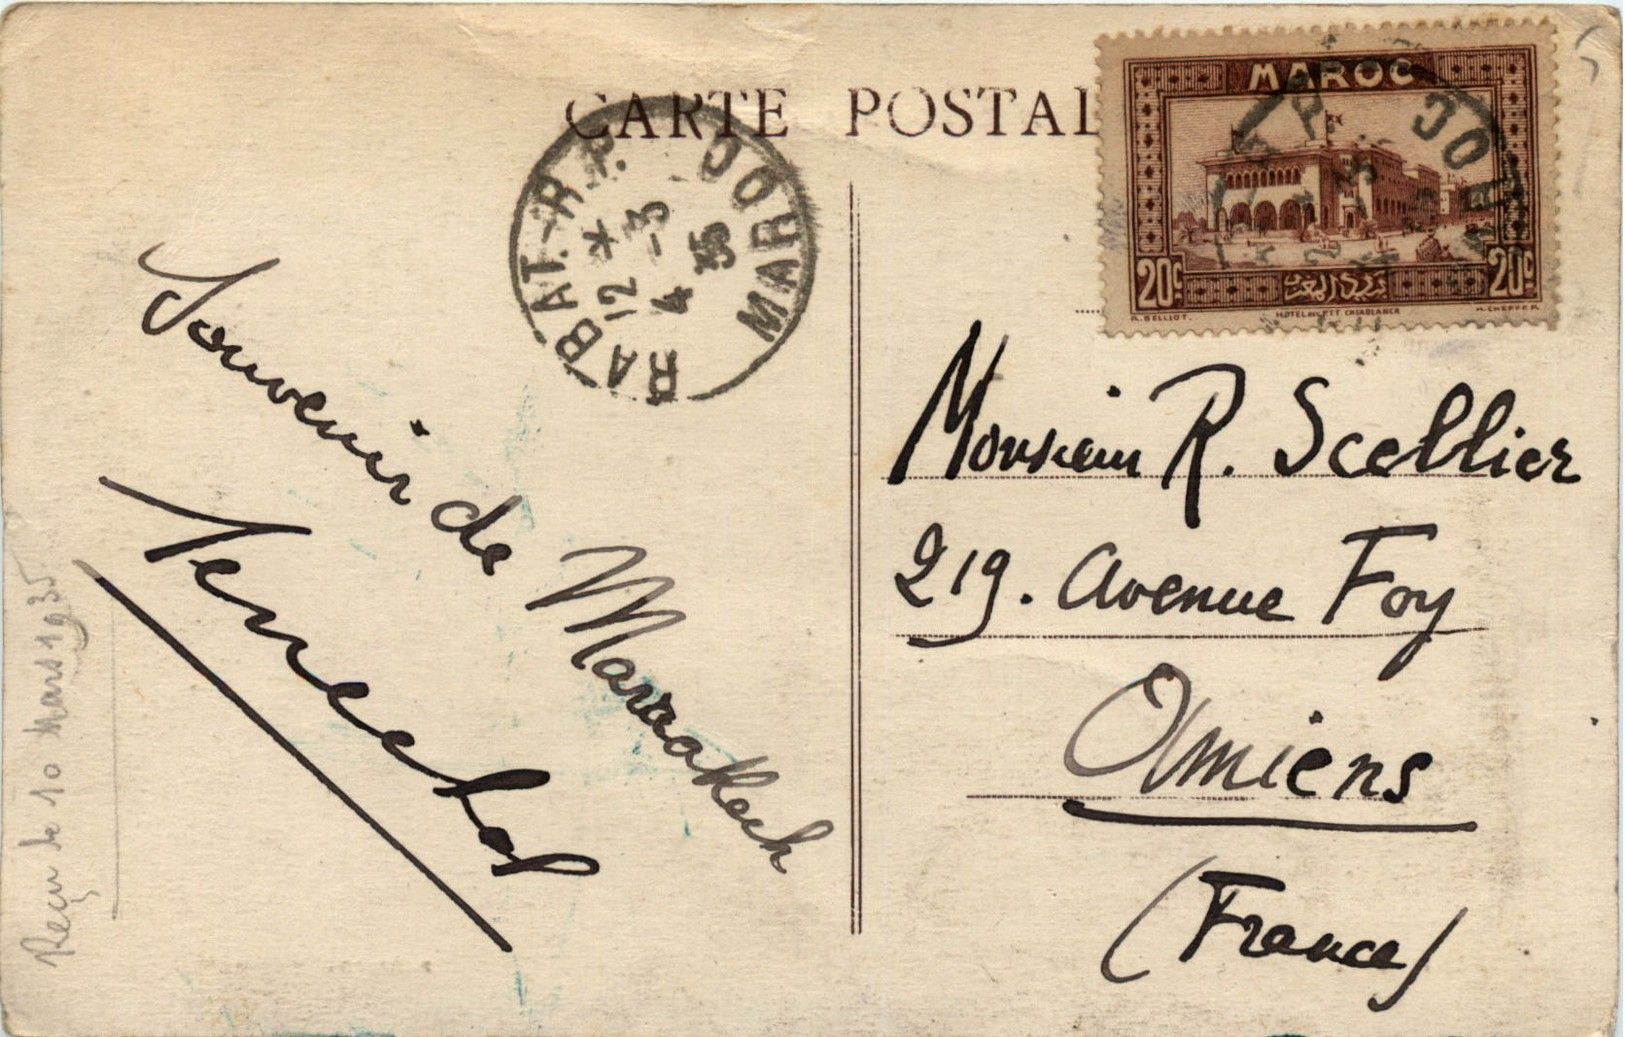 CARTE POSTAL
MAROC
20c 20c
HOTEL DES PTT CASABLANCA
RABAT-R.P.
MAROC
12 *
4 -3
35
Souvenir de Marrakech
Reçu le 10 Mars 1935
Monsieur R. Scellier
219. Avenue Foy
Amiens
(France)